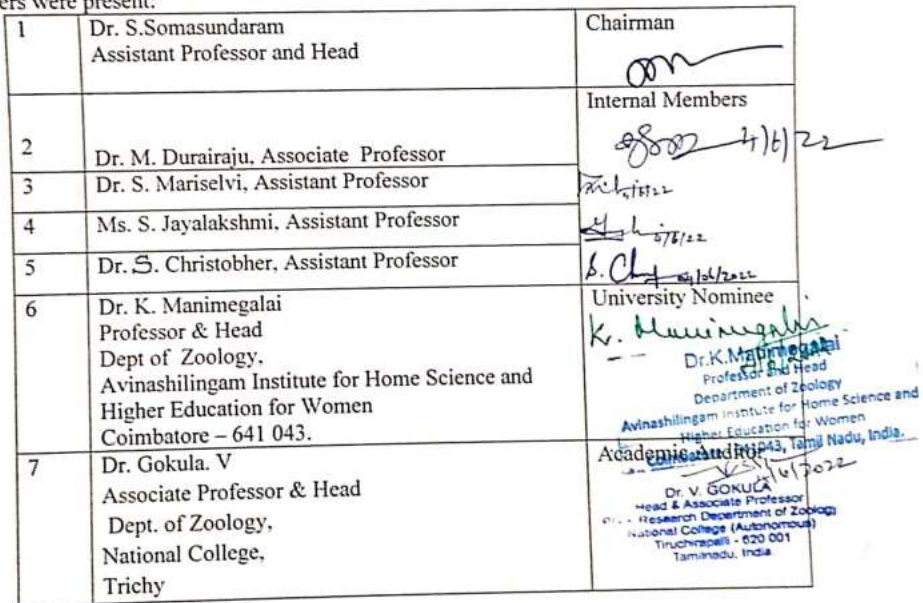 ers were present.
1
Dr. S.Somasundaram
Assistant Professor and Head
Chairman
2
Dr. M. Durairaju, Associate Professor
Internal Members
4/6/22
3
Dr. S. Mariselvi, Assistant Professor
4
Ms. S. Jayalakshmi, Assistant Professor
5
Dr. S. Christobher, Assistant Professor
6
Dr. K. Manimegalai
Professor & Head
Dept of Zoology,
Avinashilingam Institute for Home Science and
Higher Education for Women
Coimbatore – 641 043.
University Nominee
K. Manimegalai
Dr.K.Manimegalai
Professor and Head
Department of Zoology
Avinashilingam Institute for Home Science and
Higher Education for Women
Coimbatore 641043, Tamil Nadu, India.
7
Dr. Gokula. V
Associate Professor & Head
Dept. of Zoology,
National College,
Trichy
Academic Auditor
Dr. V. GOKULA
Head & Associate Professor
Research Department of Zoology
National College (Autonomous)
Tiruchirapalli - 620 001
Tamilnadu, India